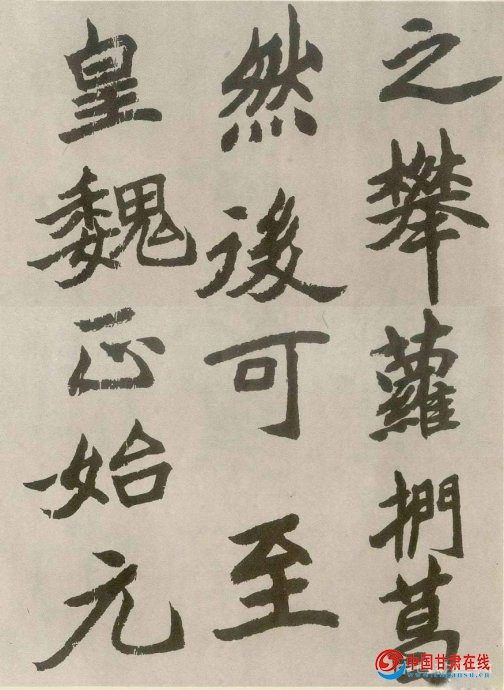 之攀蘿捫葛
然後可至
皇魏正始元
中国甘肃在线